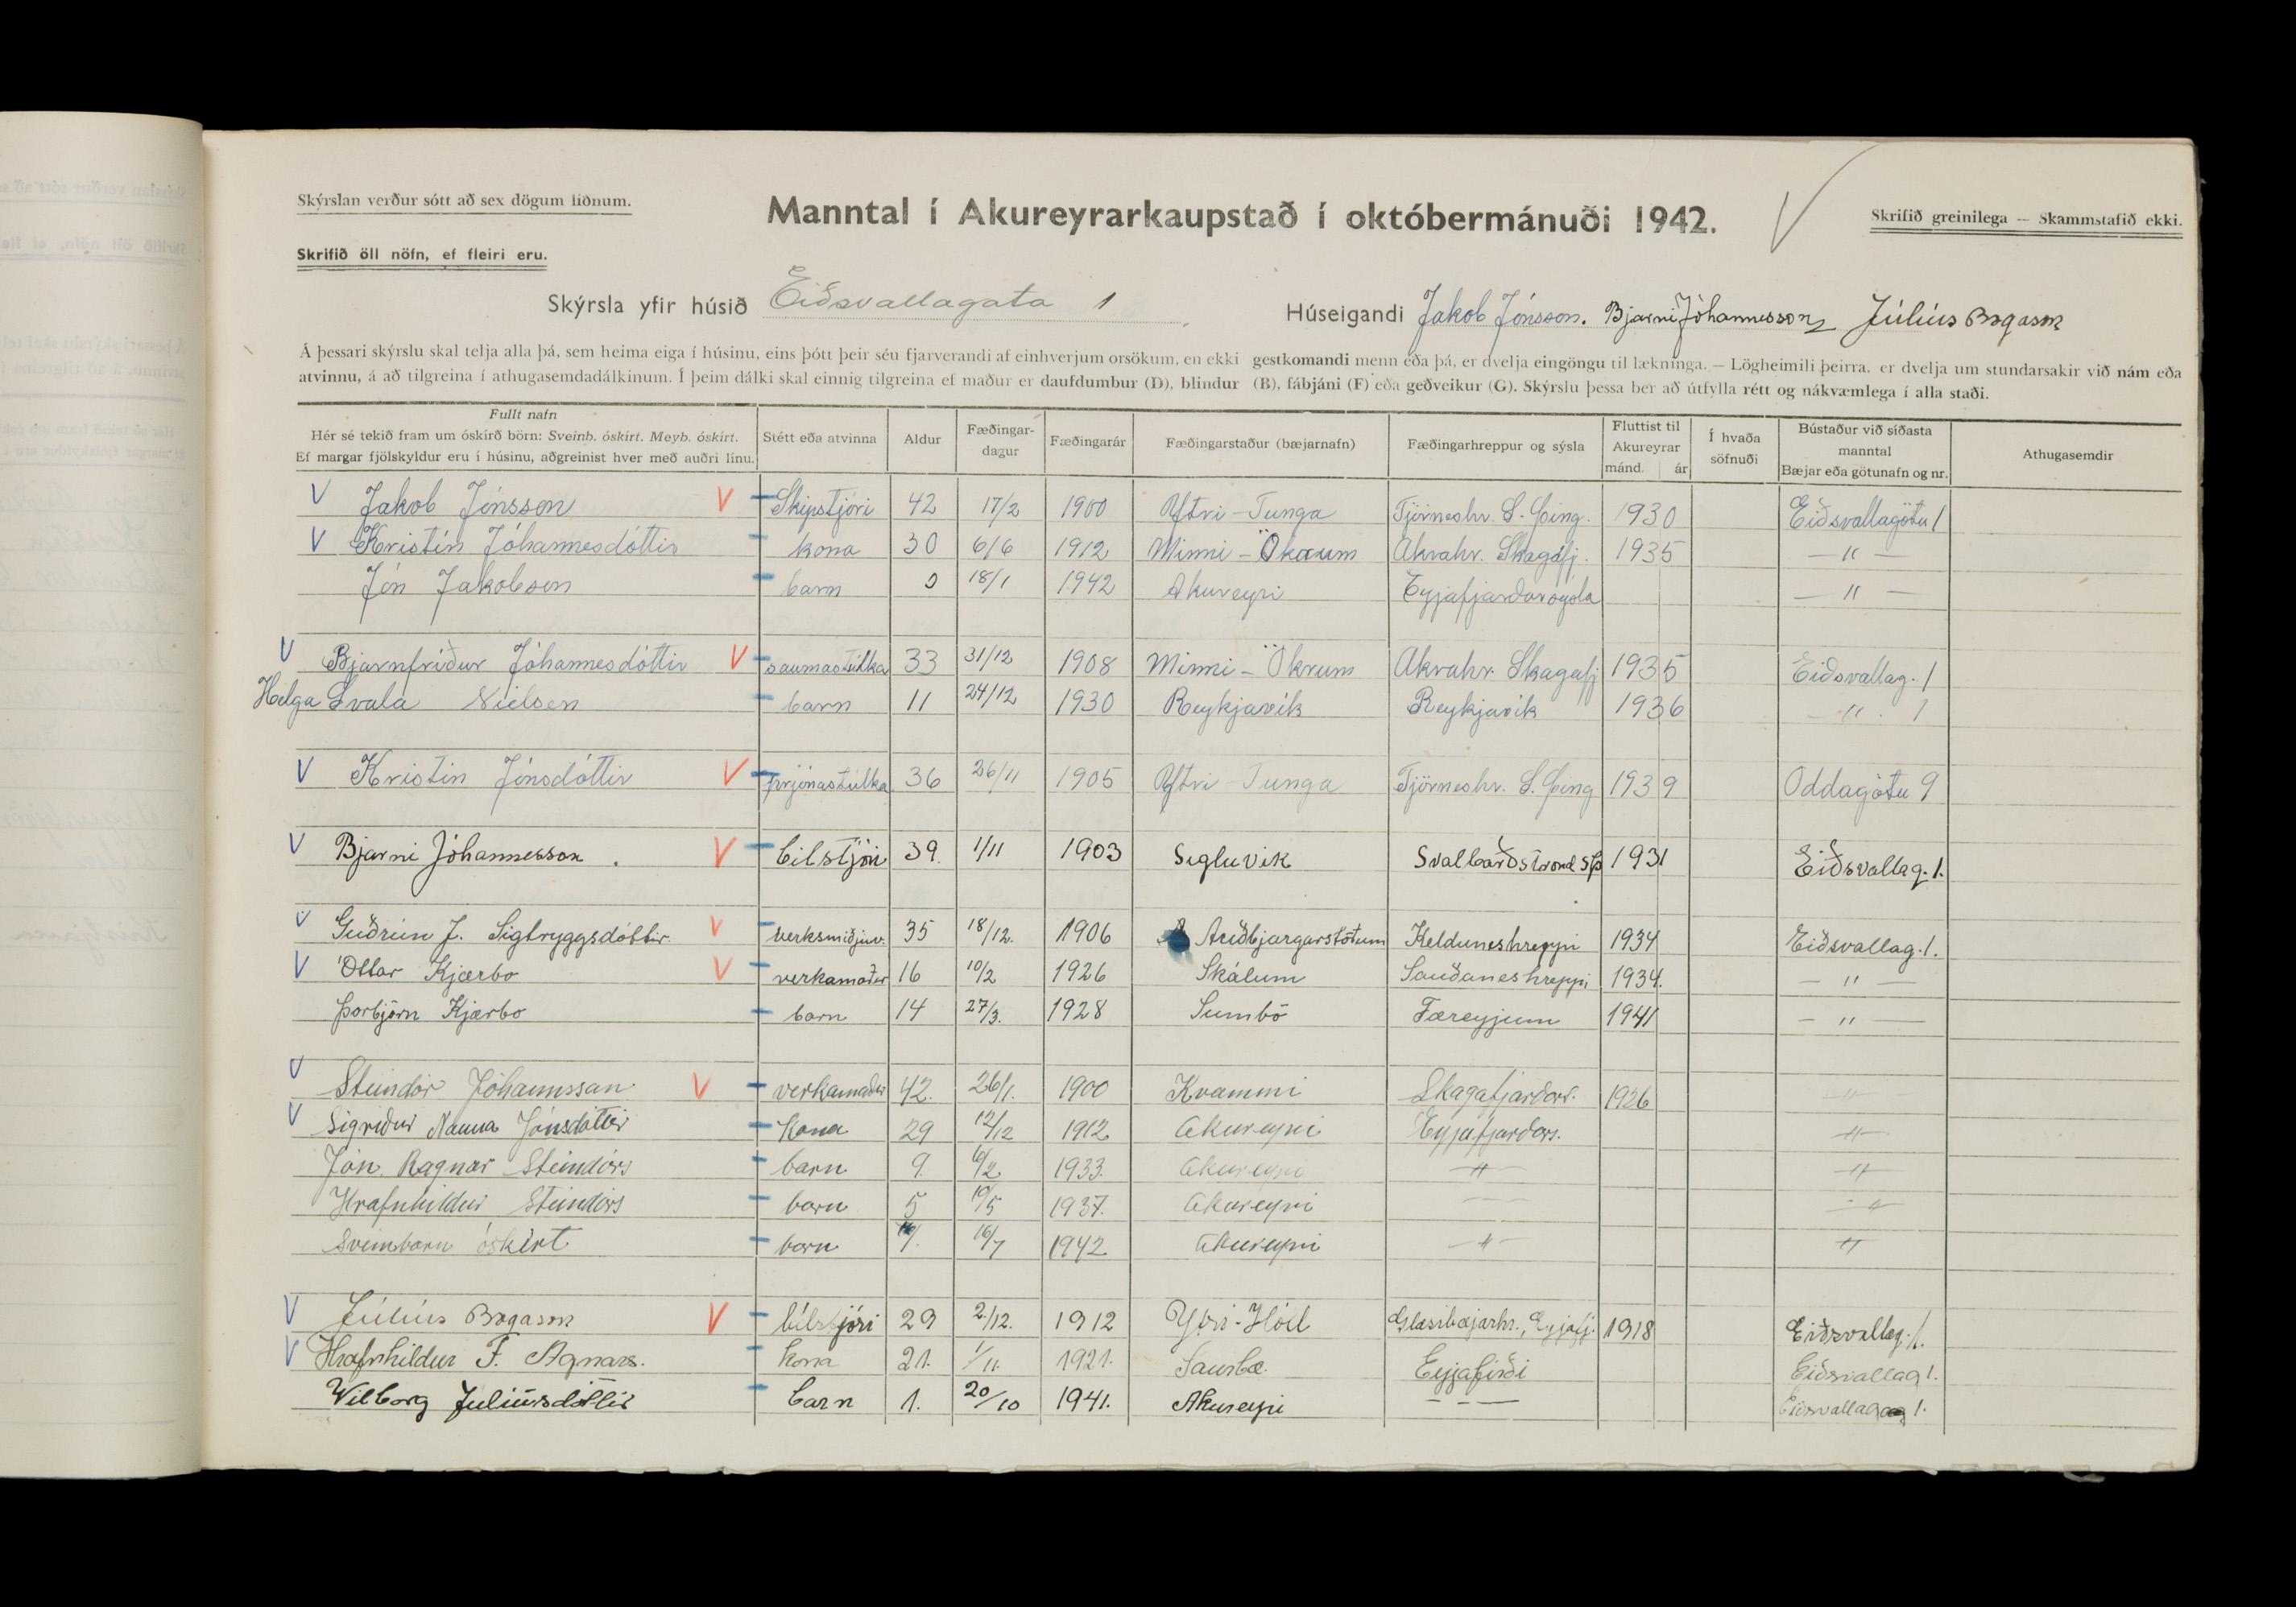 Skýrslan verður sótt að sex dögum liðnum.
Manntal í Akureyrarkaupstað í októbermánuði 1942.
Skrifið greinilega — Skammstafið ekki.
Skrifið öll nöfn, ef fleiri eru.
Skýrsla yfir húsið Eiðsvallagata 1 Húseigandi Jakob Jónsson. Bjarni Jóhannesson, Júlíus Bogason
Á þessari skýrslu skal telja alla þá, sem heima eiga í húsinu, eins þótt þeir séu fjarverandi af einhverjum orsökum, en ekki gestkomandi menn eða þá, er dvelja eingöngu til lækninga. — Lögheimili þeirra. er dvelja um stundarsakir við nám eða
atvinnu, á að tilgreina í athugasemdadálkinum. Í þeim dálki skal einnig tilgreina ef maður er daufdumbur (D), blindur (B), fábjáni (F) eða geðveikur (G). Skýrslu þessa ber að útfylla rétt og nákvæmlega í alla staði.
Fullt nafn
Hér sé tekið fram um óskírð börn: Sveinb. óskírt. Meyb. óskírt.
Ef margar fjölskyldur eru í húsinu, aðgreinist hver með auðri línu.
Stétt eða atvinna
Aldur
Fæðingar-
dagur
Fæðingarár
Fæðingarstaður (bæjarnafn)
Fæðingarhreppur og sýsla
Fluttist til
Akureyrar
mánd. ár
Í hvaða
söfnuði
Bústaður við síðasta
manntal
Bæjar eða götunafn og nr.
Athugasemdir
V Jakob Jónsson V Skipstjóri 42 17/2 1900 Ytri-Tunga Tjörneshr. S. Þing. 1930 Eiðsvallagötu 1
V Kristín Jóhannesdóttir kona 30 6/6 1912 Minni-Ökrum Akrahr. Skagafj. 1935 — " —
Jón Jakobsson barn 0 18/1 1942 Akureyri Eyjafjarðarsýsla — " —
V Bjarnfríður Jóhannesdóttir V saumastúlka 33 31/12 1908 Minni-Ökrum Akrahr. Skagafj 1935 Eiðsvallag. 1
Helga Svala Nielsen barn 11 24/12 1930 Reykjavík Reykjavík 1936 — " . 1
V Kristín Jónsdóttir V prjónastúlka 36 26/11 1905 Ytri-Tunga Tjörneshr. S. Þing 1939 Oddagötu 9
V Bjarni Jóhannesson . V bílstjóri 39. 1/11 1903 Sigluvík Svalbarðströnd SÞ 1931 Eiðsvallag. 1.
V Guðrún J. Sigtryggsdóttir. V verksmiðjuv. 35 18/12. 1906 Auðbjargarstöðum Kelduneshreppi 1934 Eiðsvallag. 1.
V Óttar Kjærbo V verkamaður 16 10/2 1926 Skálum Sauðaneshreppi 1934. — " —
Þorbjörn Kjærbo barn 14 27/3. 1928 Sumbö Færeyjum 1941 — " —
V Steindór Jóhannsson V verkamaður 42. 26/1. 1900 Kvammi Skagafjarðars. 1926 — " —
V Sigríður Nanna Jónsdóttir kona 29 12/12 1912 Akureyri Eyjafjarðars. — " —
Jón Ragnar Steindórs barn 9. 6/2 1933. Akureyri — " — — " —
Hrafnhildur Steindórs barn 5 10/5 1937. Akureyri — — — " —
Sveinbarn óskírt barn 16/7 1942 Akureyri — " — "
V Júlíus Bogason V bílstjóri 29 2/12. 1912 Ytri-Hóll Glæsibæjarhr., Eyjafj. 1918 Eiðsvallag. 1.
V Hrafnhildur F. Agnars. kona 21. 1/11. 1921. Saurbæ. Eyjafirði Eiðsvallag 1.
Vilborg Júlíusdóttir barn 1. 20/10 1941. Akureyri — — — Eiðsvallag 1.